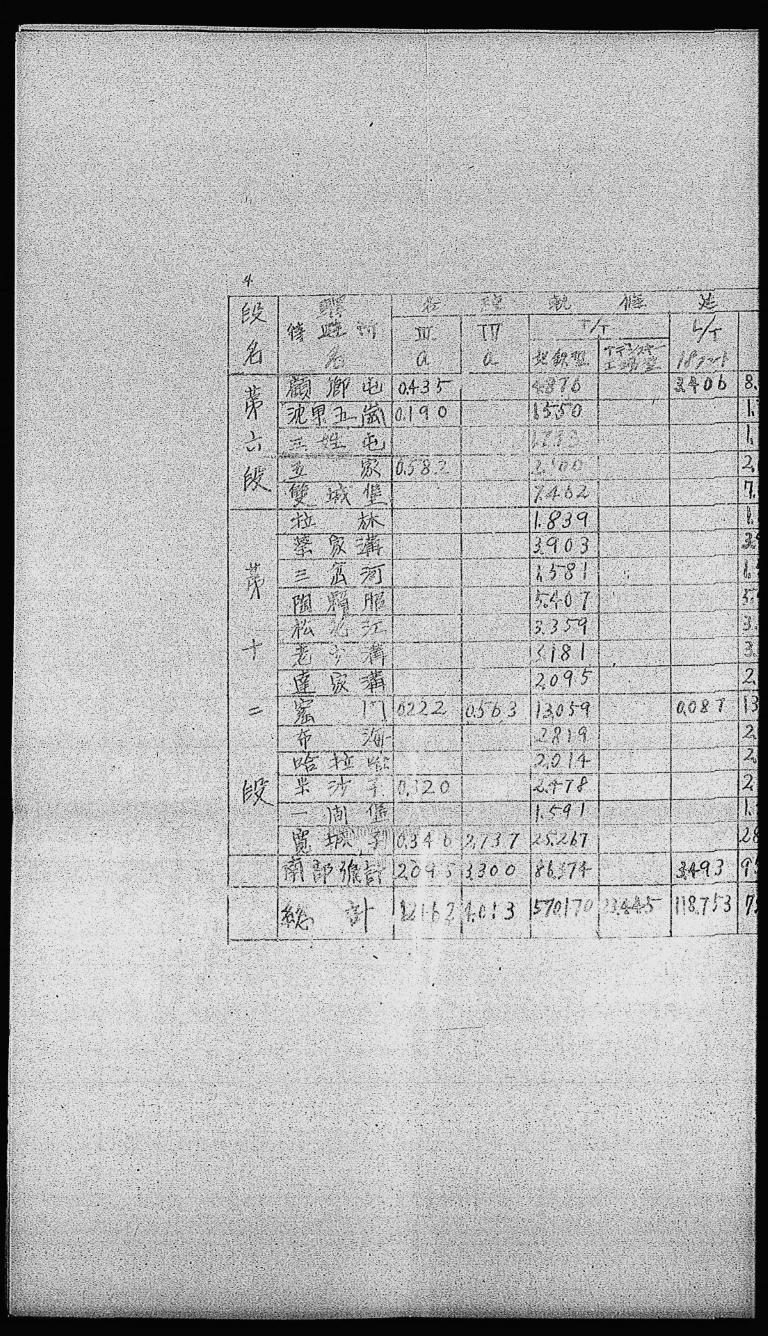 4
段名 停 名 各 種 軌 延
III a IIII a T/T L/T
第六段
顧鄉屯 0.435 4.876 3.406 8.
五 0.190 1.550 1.
三姓屯 1.
五家 0.582 2.100 2.
雙城堡 7.462 7.
第十二段
拉林 1.839 1.
蔡家溝 3.903 3.9
三岔河 1.581 1.
陶賴昭 5.407 5.
松花江 3.359 3.
老少溝 3.181 3.
達家溝 2.095 2.
窑門 0.222 0.563 13.059 0.087 13
布海 2.819 2.
哈拉哈 2.014 2.
米沙子 0.120 2.478 2
一間堡 1.591 1.
寬城子 0.346 2.737 25.267 28
南部線計 2.095 3.300 86.374 3.493 9
総計 12.162 4.013 570.170 23.445 118.753 7